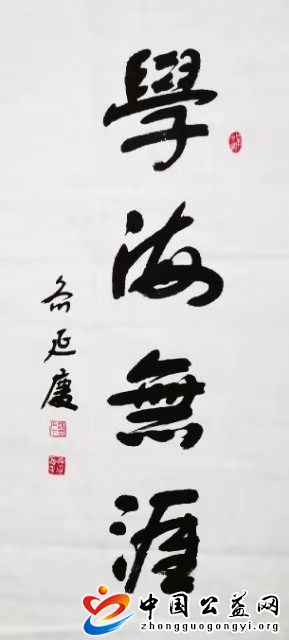 學海無涯
俞延慶
中国公益网
zhongguogongyi.org